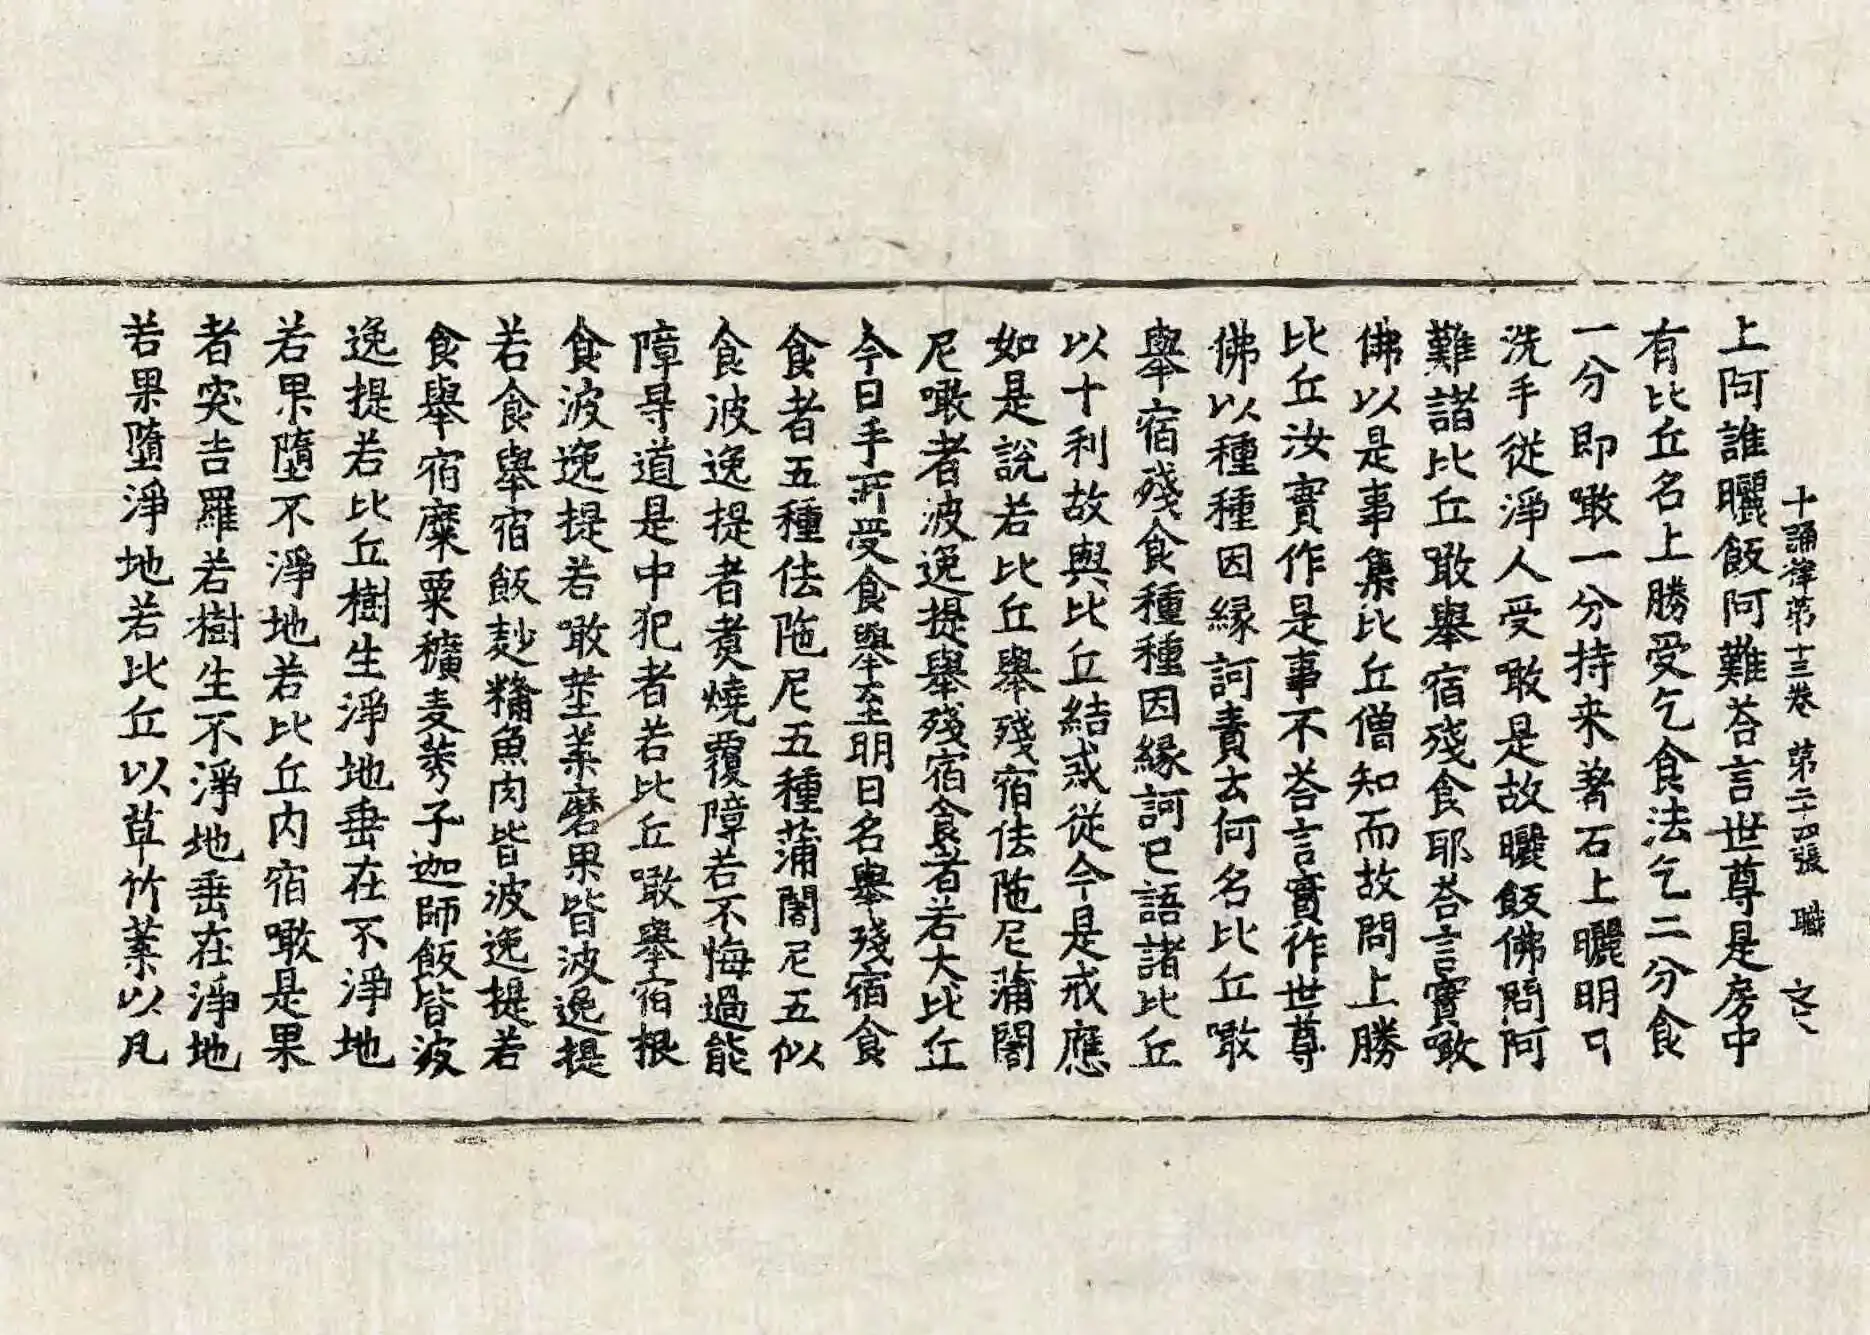 十誦律第十三卷 第二十四張 職
上阿誰曬飯阿難荅言世尊是房中
有比丘名上勝受乞食法乞二分食
一分即噉一分持来著石上曬明日
洗手從淨人受噉是故曬飯佛問阿
難諸比丘噉舉宿殘食耶荅言實噉
佛以是事集比丘僧知而故問上勝
比丘汝實作是事不荅言實作世尊
佛以種種因縁訶責云何名比丘噉
舉宿殘食種種因縁訶已語諸比丘
以十利故與比丘結戒從今是戒應
如是說若比丘舉殘宿佉陁尼蒲闍
尼噉者波逸提舉殘宿食者若大比丘
今日手所受食舉至明日名舉殘宿食
食者五種佉陁尼五種蒲闍尼五似
食波逸提者煑燒覆障若不悔過能
障㝵道是中犯者若比丘噉舉宿根
食波逸提若噉莖葉磨果皆波逸提
若食舉宿飯麨糒魚肉皆波逸提若
食舉宿糜粟穬麦莠子迦師飯皆波
逸提若比丘樹生淨地垂在不淨地
若果墮不淨地若比丘内宿噉是果
者突吉羅若樹生不淨地垂在淨地
若果墮淨地若比丘以草竹葉以凡